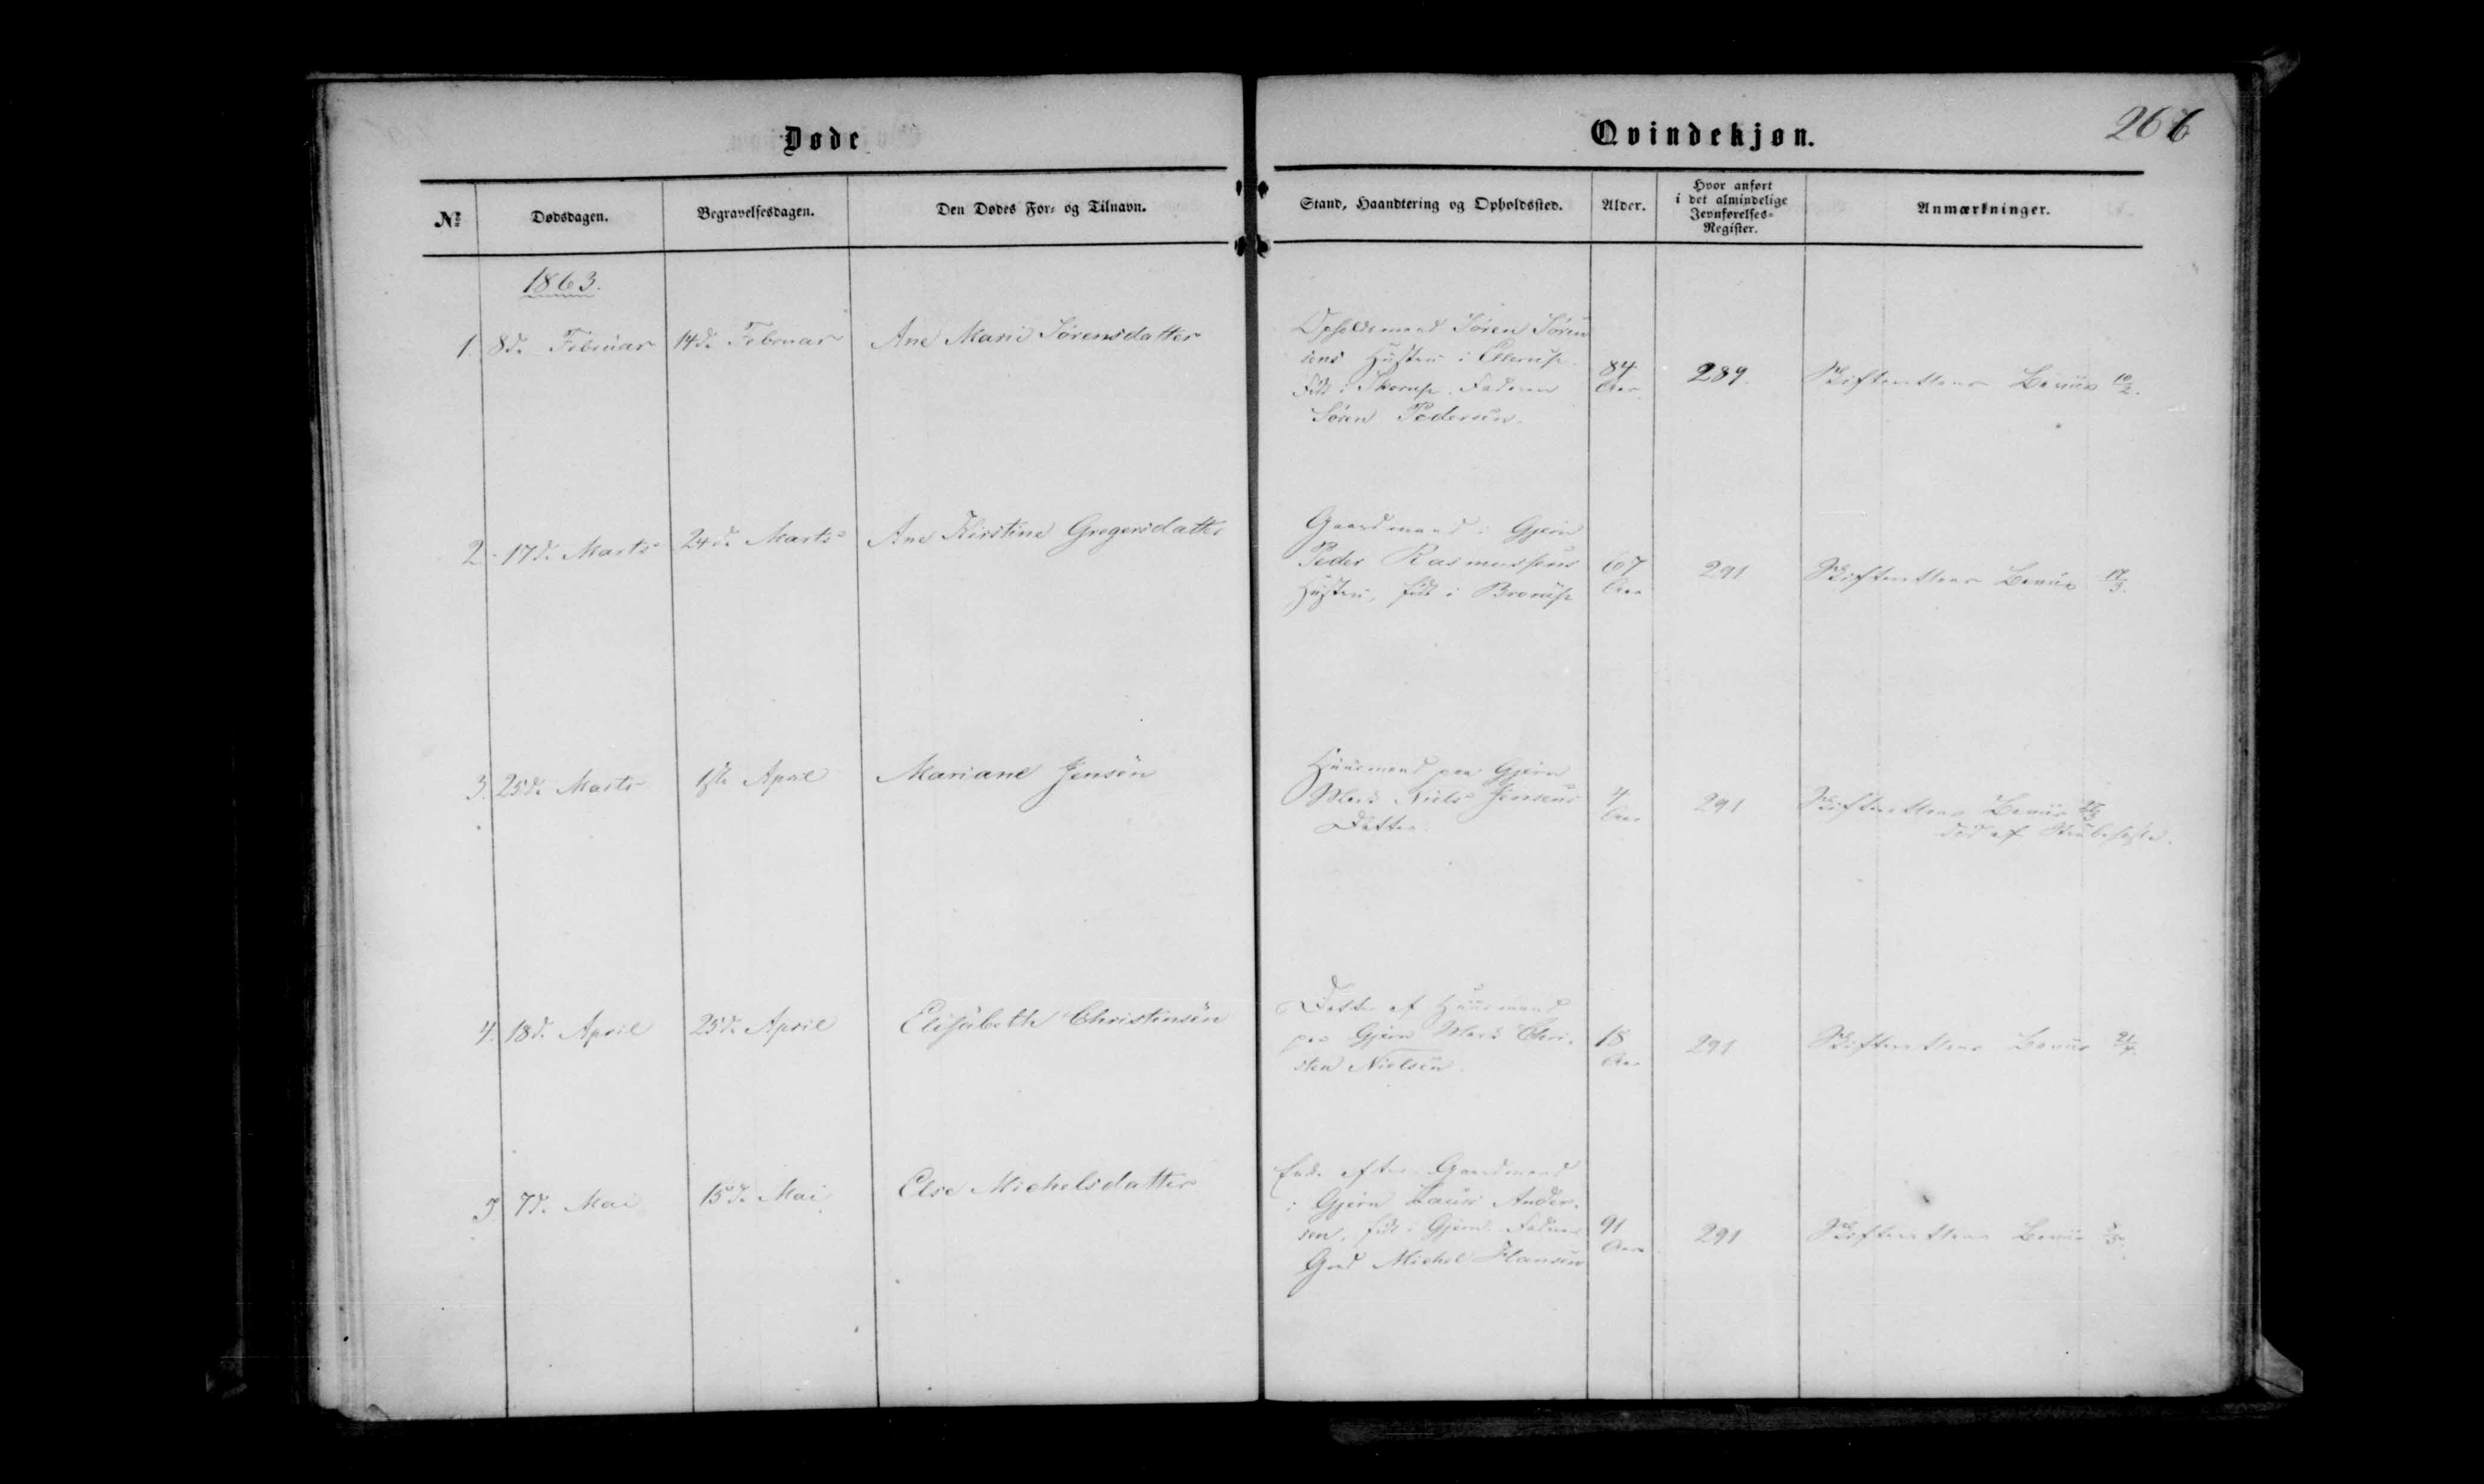 Døde
Qvindekjøn.
266
№
Dødsdagen.
Begravelsesdagen.
Den Dødes For- og Tilnavn.
Stand, Haandtering og Opholdssted.
Alder.
Hvor anført
i det almindelige
Jevnførelses-
Register.
Anmærkninger.
1863.
1. 8d. Februar 14d. Februar Ane Marie Sørensdatter
Opholdsmand Søren Søren
sens Hustru i Ellerup.
Født i Skorup. Faderen
Søren Pedersen.
84
Aar
289.
Skifterettens Beviis 10/2.
2. 17d. Marts 24d. Marts Ane Kirstine Gregersdatter
Gaardmand i Gjern
Peder Rasmussens
Hustru, født i Brorup
67
Aar
291
Skifterettens Beviis 17/3.
3. 25d. Marts 1ste April Mariane Jensen
Huusmand paa Gjern
Mark Niels Jensens
Datter.
4
Aar
291
Skifterettens Beviis
død af Strubehoste.
4. 18d. April 25d. April Elisabeth Christensen
Datter af Huusmand
paa Gjern Mark Chri-
sten Nielsen.
18
Aar
291
Skifterettens Beviis 21/4.
5. 7d. Mai 15d. Mai Else Michelsdatter
Enke efter Gaardmand
i Gjern Laurs Ander-
sen, født i Gjern. Faderen
Gmd Michel Hansen
91
Aar
291
Skifterettens Beviis 8/5.